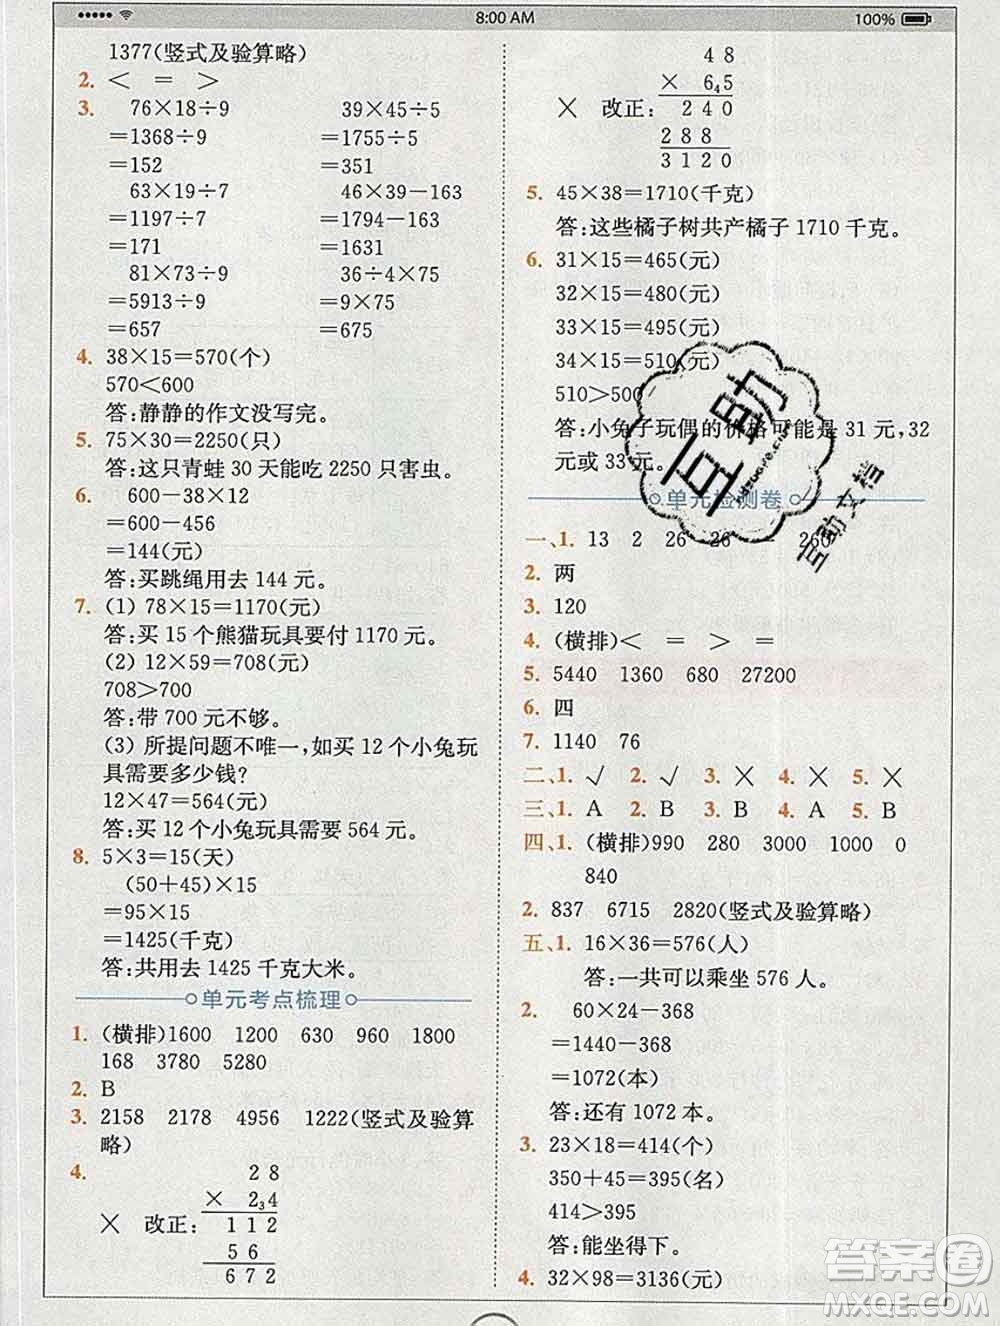 8:00 AM
100%
1377(竖式及验算略)
2. < = >
3. 76×18÷9 39×45÷5
=1368÷9 =1755÷5
=152 =351
63×19÷7 46×39-163
=1197÷7 =1794-163
=171 =1631
81×73÷9 36÷4×75
=5913÷9 =9×75
=657 =675
4. 38×15=570(个)
570<600
答:静静的作文没写完。
5. 75×30=2250(只)
答:这只青蛙 30 天能吃 2250 只害虫。
6. 600-38×12
=600-456
=144(元)
答:买跳绳用去 144 元。
7. (1) 78×15=1170(元)
答:买 15 个熊猫玩具要付 1170 元。
(2) 12×59=708(元)
708>700
答:带 700 元不够。
(3) 所提问题不唯一,如买 12 个小兔玩
具需要多少钱?
12×47=564(元)
答:买 12 个小兔玩具需要 564 元。
8. 5×3=15(天)
(50+45)×15
=95×15
=1425(千克)
答:共用去 1425 千克大米。
单元考点梳理
1. (横排)1600 1200 630 960 1800
168 3780 5280
2. B
3. 2158 2178 4956 1222(竖式及验算
略)
4. 2 8
× 2₃4
× 改正: 1 1 2
5 6
6 7 2
4 8
× 6₄5
× 改正: 2 4 0
2 8 8
3 1 2 0
5. 45×38=1710(千克)
答:这些橘子树共产橘子 1710 千克。
6. 31×15=465(元)
32×15=480(元)
33×15=495(元)
34×15=510(元)
510>500
答:小兔子玩偶的价格可能是 31 元,32
元或 33 元。
单元检测卷
一、1. 13 2 26 26 260
2. 两
3. 120
4. (横排)< = > =
5. 5440 1360 680 27200
6. 四
7. 1140 76
二、1. √ 2. √ 3. × 4. × 5. ×
三、1. A 2. B 3. B 4. A 5. B
四、1. (横排)990 280 3000 1000 0
840
2. 837 6715 2820(竖式及验算略)
五、1. 16×36=576(人)
答:一共可以乘坐 576 人。
2. 60×24-368
=1440-368
=1072(本)
答:还有 1072 本。
3. 23×18=414(个)
350+45=395(名)
414>395
答:能坐得下。
4. 32×98=3136(元)
互助
互助文档
答案圈
MXQE.COM